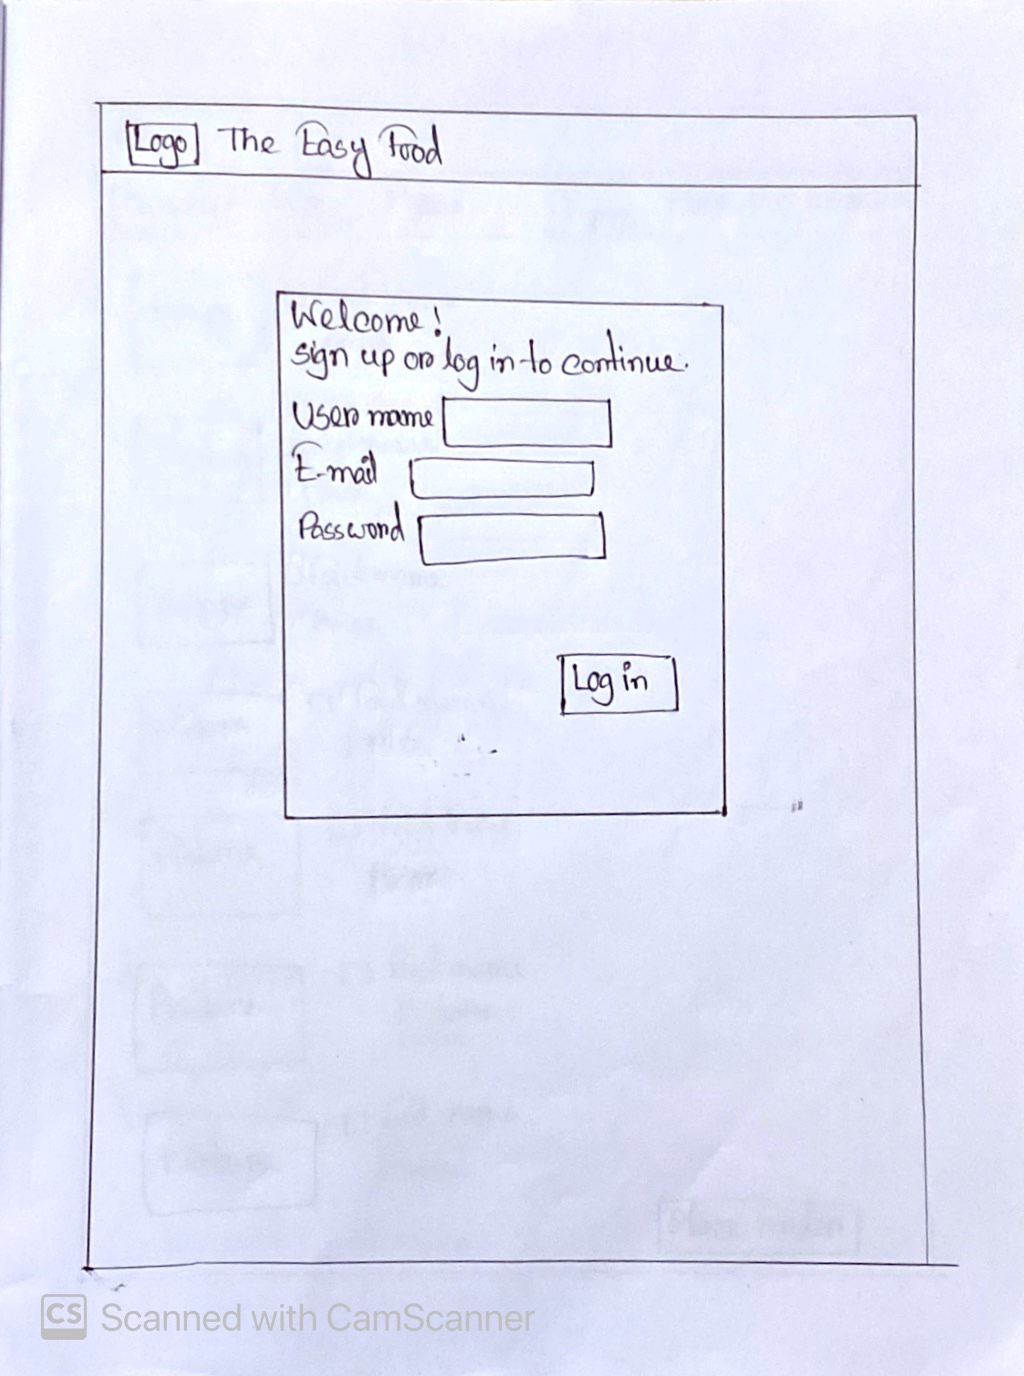 Logo The Easy Food
Welcome!
sign up or log in to continue.
User name
E-mail
Password
Log in
CS Scanned with CamScanner